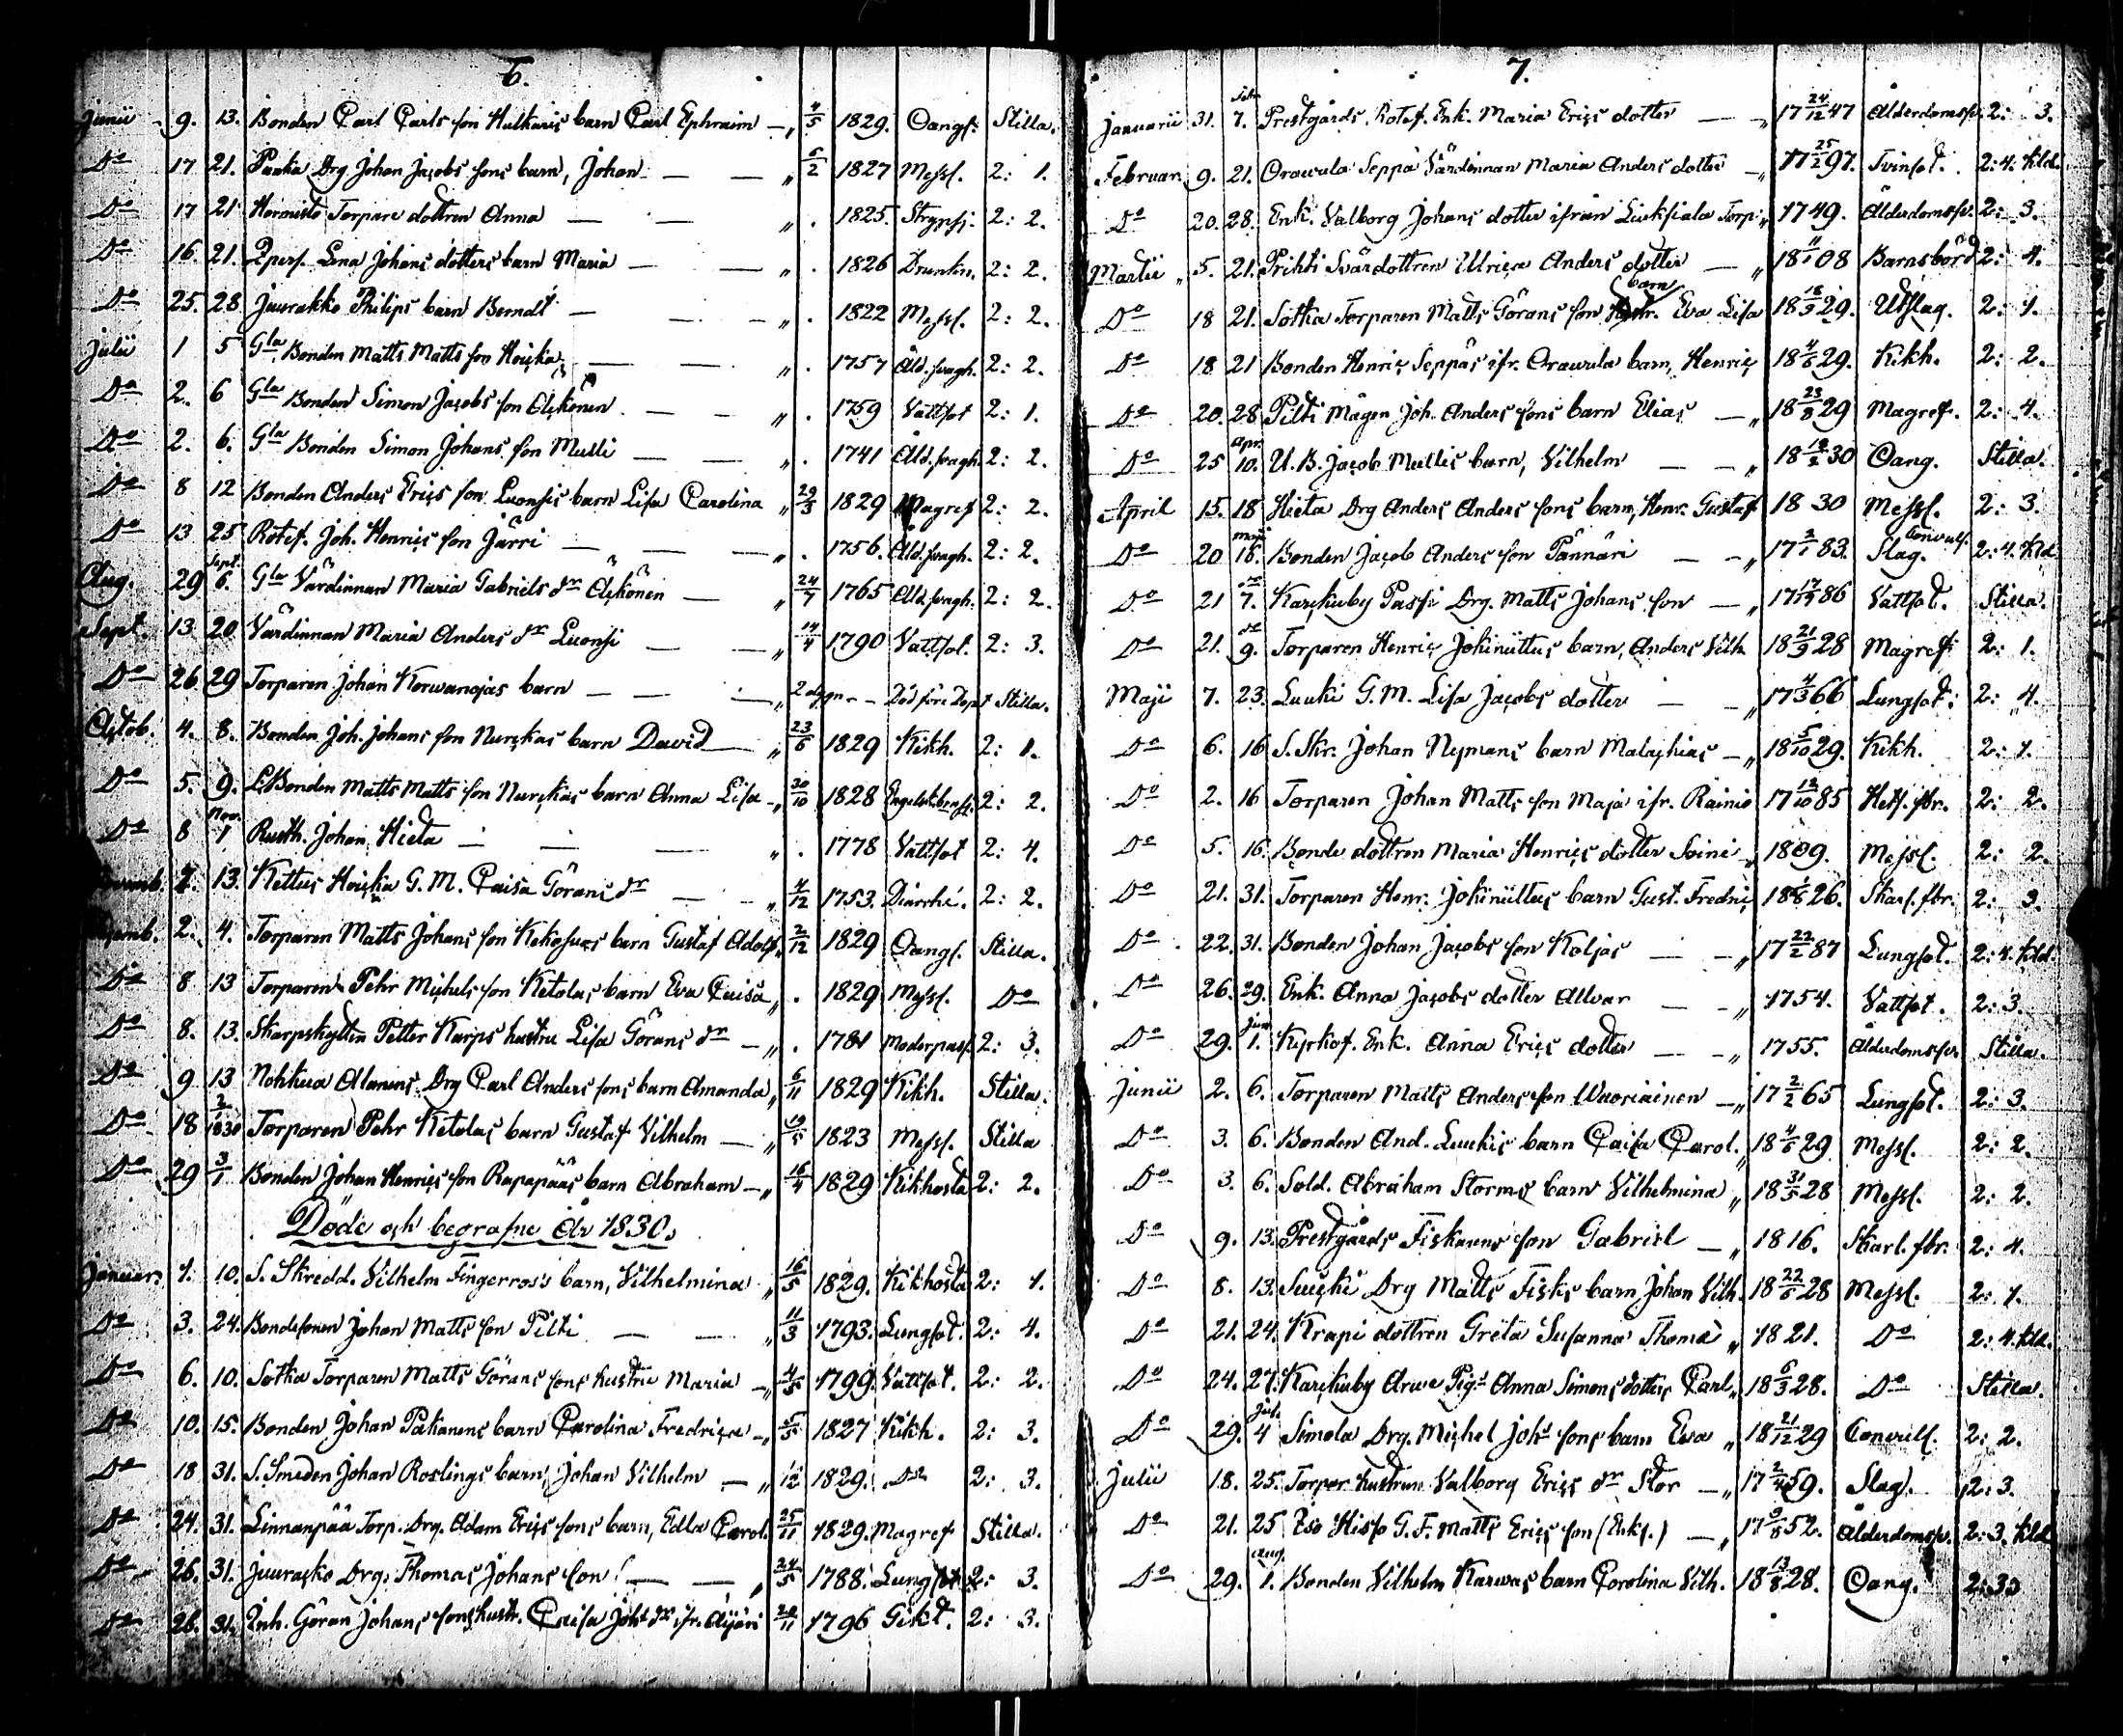 6.
Junii 9. 13. Bonden Carl Carls son Hulkaris barn Carl Ephraim — „ 4/5 1829. Oangs. Stilla.
Do 17 21. Panka Drg Johan Jacobs sons barn, Johan — — „ 6/2 1827 Messl. 2: 1.
Do 17 21 Hormisto Torpare dottren Anna — — „ . 1825. Strypsj. 2: 2.
Do 16. 21. Lena Johans dotters barn Maria — — „ . 1826 Drunkn. 2: 2.
Do 25. 28. Juurakko Philips barn Berndt — — „ . 1822 Messl. 2: 2.
Julii 1 5 Gla Bonden Matts Matts son Hoicka — — „ . 1757 Åld.svagh. 2: 2.
Do 2. 6 Gla Bonden Simon Jacobs son Äckönen — — „ . 1759 Vattsot 2: 1.
Do 2. 6. Gla Bonden Simon Johans son Mulli — — „ . 1741 Åld.svagh 2: 2.
Do 8 12 Bonden Anders Erics son Luonsis barn Lisa Carolina „ 29/3 1829 Magref 2: 2.
Do 13 25 Rotef. Joh. Henrics son Järri — — „ . 1756. Åld.svagh. 2: 2.
Aug. 29 Sept. 6. Gla Värdinnan Maria Gabriels dr Äckönen — „ 24/7 1765 Åld.svagh. 2: 2.
Sept. 13 20 Värdinnan Maria Anders dr Luonsi — — „ 14/4 1790 Vattsot. 2: 3.
Do 26 29 Torparen Johan Korwanojas barn — — — „ 2 dygn — Död före Dopet Stilla.
Octob. 4. 8. Bonden Joh. Johans son Nurckas barn David — „ 23/6 1829 Kikh. 2: 1.
Do 5. 9. Bonden Matts Matts son Nurckas barn Anna Lisa „ 30/10 1828 2: 2.
Do 8 Nov. 1 Rusth. Johan Hieta — — — „ . 1778 Vattsot 2: 4.
2. 13. Kettus Hoicka G. M. Caisa Görans dr — — „ 4/12 1753. Diarrhé. 2: 2.
2. 4. Torparen Matts Johans son Kekosucs barn Gustaf Adolf „ 2/12 1829 Oangs. Stilla.
Do 8 13 Torparen Pehr Michels son Ketolas barn Eva Caisa „ . 1829 Messl. Do
Do 8. 13. Skarpskytten Petter Karps hustru Lisa Görans dr — „ . 1781 Moderpass. 2: 3.
Do 9 13 Nohkua Alanens Drg Carl Anders sons barn Amanda „ 6/11 1829 Kikh. Stilla.
Do 18 2/1 1830 Torparen Pehr Ketolas barn Gustaf Vilhelm — „ 10/5 1823 Messl. Stilla
Do 29 3/1 Bonden Johan Henrics son Rapapääs barn Abraham — „ 16/4 1829 Kikhosta 2: 2.
Döde och begrafne År 1830.
Januar. 1. 10. S. Skredd. Vilhelm Fingerroos's barn, Vilhelmina „ 16/5 1829. Kikhosta 2: 1.
Do 3. 24. Bondesonen Johan Matts son Pilti — — „ 11/3 1793. Lungsot. 2: 4.
Do 6. 10. Sotka Torparen Matts Görans sons hustru Maria — „ 4/5 1799. Vattsot. 2: 2.
Do 10. 15. Bonden Johan Pakanens barn Carolina Fredrica — „ 1827 Kikh. 2: 3.
Do 18 31. S. Smeden Johan Roslings barn, Johan Vilhelm — „ 1829. Do 2: 3.
Do 24. 31. Linnanpää Torp. Drg. Adam Erics sons barn, Edla Carol. 25/11 1829. Magref Stilla.
Do 26. 31. Juuracko Drg. Thomas Johans son — — „ 24/5 1788. Lungsot 2: 3.
Do 28. 31. Inh. Göran Johans sons hustr. Caisa Johs dr ifr. Äijäri 20/11 1796 Gikt. 2: 3.
7.
Januarii 31. Febr. 7. Prestgårds Rotef. Enk. Maria Erics dotter — „ 17 24/12 47 Ålderdomssv. 2: 3.
Februari 9. 21. Orawula Seppä Värdinnan Maria Anders dotter — „ 17 25/2 97. Tvinsot. 2: 4. kld.
Do 20. 28. Enk. Valborg Johans dotter ifrån Liuksiala Torp „ 1749. Ålderdomssv. 2: 3.
Martii 5. 21. Prihti Svärdottren Ulrica Anders dotter — „ 18 11/1 08 Barnsbörd 2: 4.
Do 18 21. Sotka Torparen Matts Görans son barn Eva Lisa 18 18/9 29. Utslag. 2: 1.
Do 18 21 Bonden Henric Seppäs ifr. Orawula barn, Henric 18 4/6 29. Kikh. 2: 2.
Do 20. 28. Pilti Mågen Joh. Anders sons barn Elias — „ 18 23/8 29 Magref. 2: 4.
Do 25 Apr. 10. U. B. Jacob Mullis barn, Vilhelm — — „ 18 12/2 30 Oang. Stilla.
April 15. 18 Hieta Drg Anders Anders sons barn, Henr. Gustaf 18 30 Messl. 2: 3.
Do 20 Maji 16. Bonden Jacob Anders son Pännäri — — „ 17 2/1 83. Slag. Convuls. 2: 4. kld.
Do 21 do 7. Karckuby Passi Drg. Matts Johans son — „ 17 86 Vattsot. Stilla.
Do 21. do 9. Torparen Henric Jokinüttus barn, Anders Vilh. 18 21/9 28 Magref. 2: 1.
Maji 7. 23. Luuki G. M. Lisa Jacobs dotter — — „ 17 4/3 66 Lungsot. 2: 4.
Do 6. 16 S. Skr. Johan Nymans barn Malachias — „ 18 5/10 29. Kikh. 2: 1.
Do 2. 16 Torparen Johan Matts son Maja ifr. Rainio 17 12/10 85 Hets. fbr. 2: 2.
Do 5. 16. Bonde dottren Maria Henrics dotter Soini „ 1809. Messl. 2: 2.
Do 21. 31. Torparen Henr. Jokinüttus barn Gust. Fredric 18 26. Skarl. fbr. 2: 3.
Do 22. 31. Bonden Johan Jacobs son Koljas — — „ 17 22/2 87 Lungsot. 2: 4. kld.
Do 26. 29. Enk. Anna Jacobs dotter Allvar — — „ 1754. Vattsot. 2: 3.
Do 29. Jun. 1. Kyrkof. Enk. Anna Erics dotter — — „ 1755. Ålderdomssv. Stilla.
Junii 2. 6. Torparen Matts Anders son Wuoriainen — „ 17 2/2 65 Lungsot. 2: 3.
Do 3. 6. Bonden And. Luukis barn Caisa Carol. „ 18 4/6 29 Messl. 2: 2.
Do 3. 6. Sold. Abraham Storms barn Vilhelmina „ 18 31/5 28 Messl. 2: 2.
Do 9. 13. Prestgårds Fiskarens son Gabriel — „ 1816. Skarl. fbr. 2: 4.
Do 8. 13. Suicki Drg Matts Fisks barn Johan Vilh. 18 22/6 28 Messl. 2: 1.
Do 21. 24. Krapi dottren Greta Susanna Thomä „ 1821. Do 2: 4. kld.
Do 24. 27. Karckuby Arwe Pigs Anna Simons dotters Carl „ 18 6/3 28. Do Stilla.
Do 29. Jul. 4 Simola Drg. Michel Johs sons barn Eva „ 18 21/12 29 Convuls. 2: 2.
Julii 18. 25. Torpar hustrun Valborg Erics dr Stor — „ 17 59. Slag. 2: 3.
Do 21. 25 Iso Hiso G. F. Matts Erics son (Enkl.) — „ 17 9/8 52. Ålderdomssv. 2: 3. kld
Do 29. Aug. 1. Bonden Vilhelm Karwas barn Carolina Vilh. 18 13/8 28. Oang. 2: 3